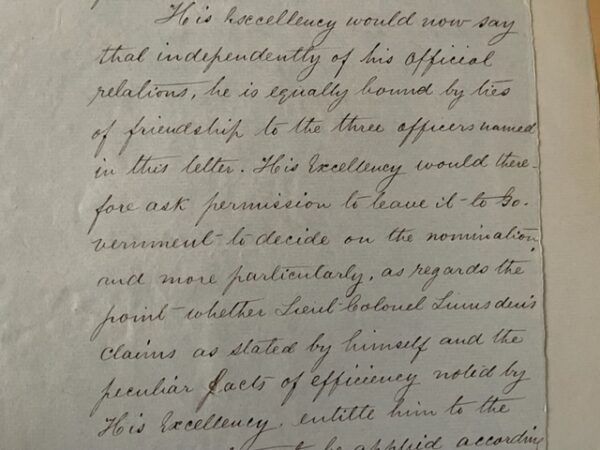 His Excellency would now say
that independently of his official
relations, he is equally bound by ties
of friendship to the three officers named
in this letter. His Excellency would there-
fore ask permission to leave it to Go-
vernment to decide on the nomination,
and more particularly, as regards the
point whether Lieut Colonel Lumsden's
claims as stated by himself and the
peculiar facts of efficiency noted by
His Excellency, entitle him to the
be applied according